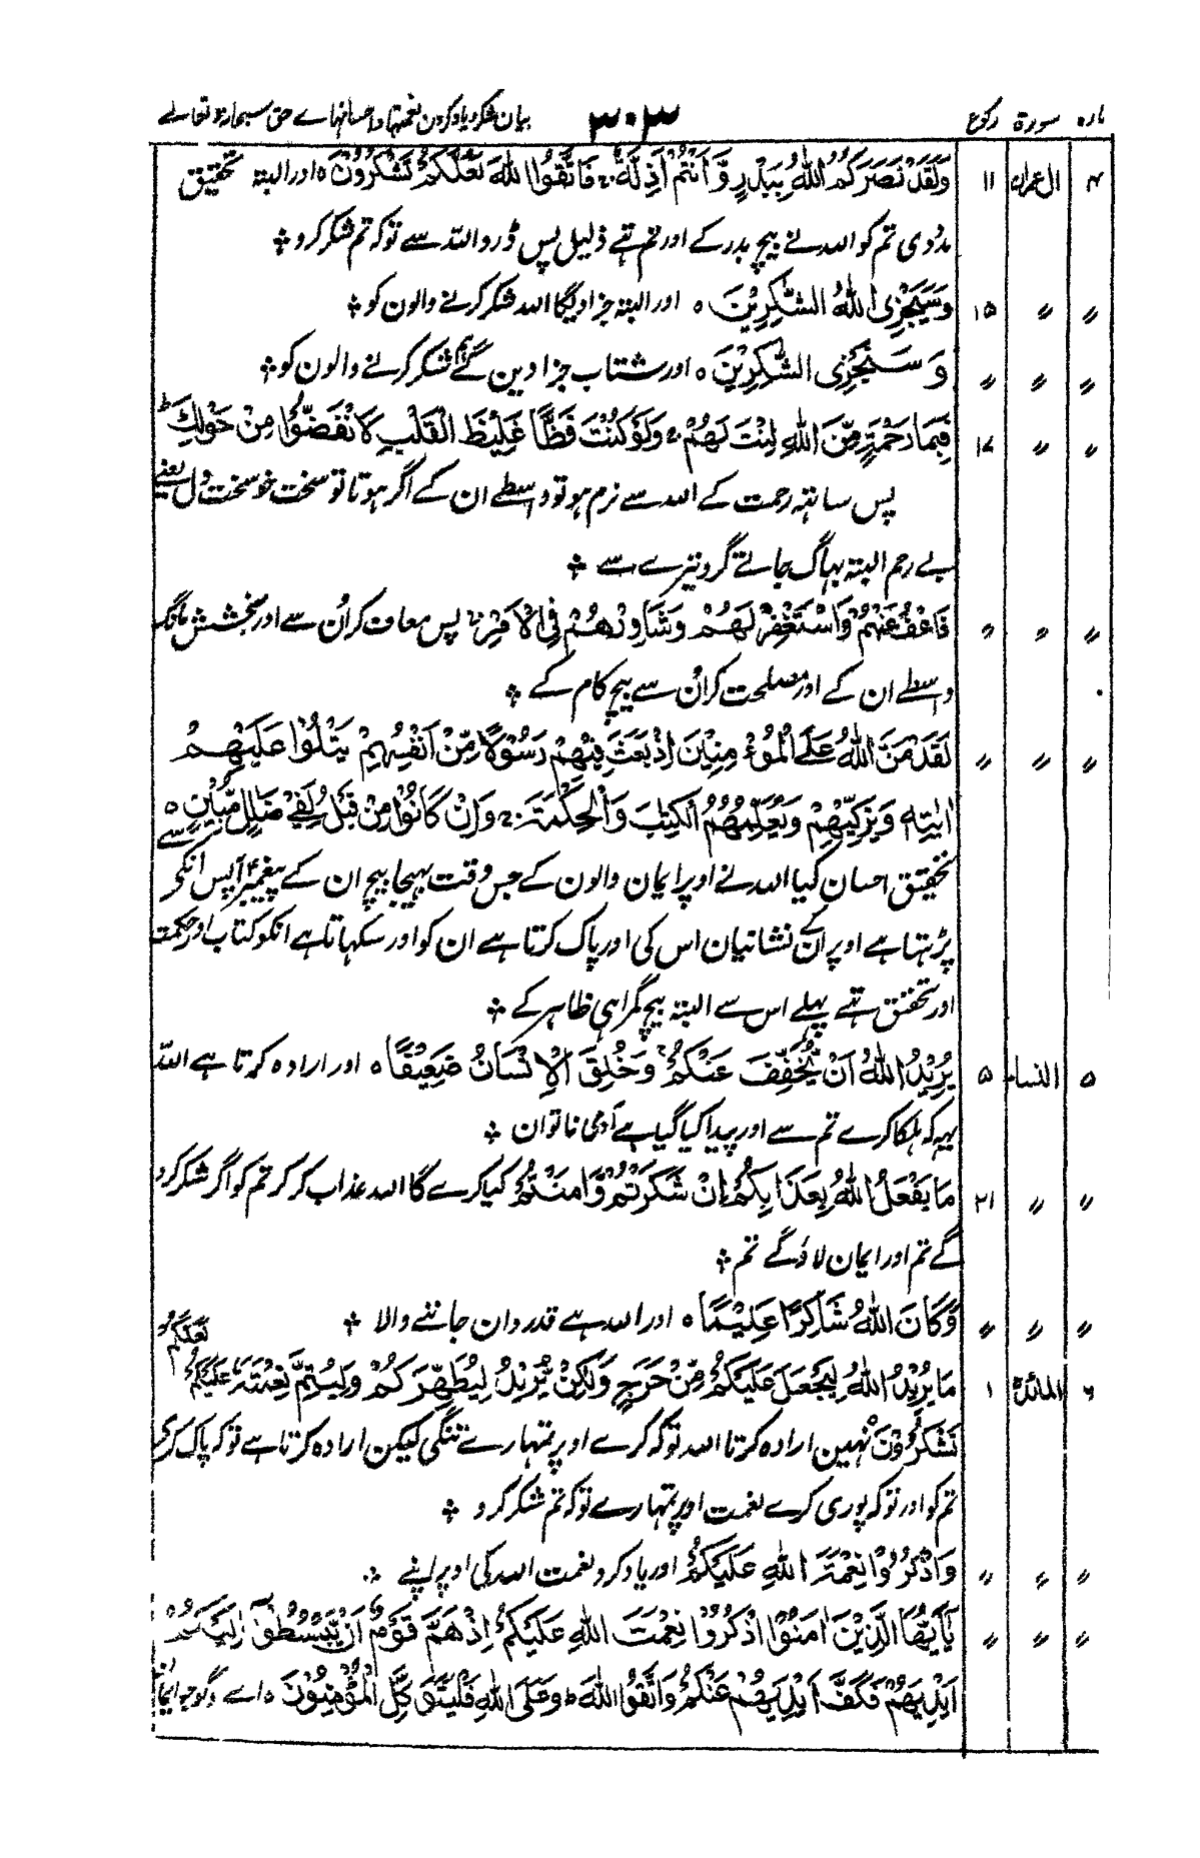 پارہ سورۃ رکوع ۳۰۳ بیان شکر و یاد کردن نعمتہا و احسانہاے حق سبحانہ تعالے
۴ ال عمران ۱۱ وَلَقَدْ نَصَرَكُمُ اللّٰهُ بِبَدْرٍ وَّاَنْتُمْ اَذِلَّةٌ فَاتَّقُوا اللّٰهَ لَعَلَّكُمْ تَشْكُرُوْنَ ٥ اور البتہ تحقیق
مدد دی تم کو اللہ نے بیچ بدر کے اور تم تہے ذلیل پس ڈرو اللہ سے توکہ تم شکر کرو
〃 〃 ۱۵ وَسَيَجْزِى اللّٰهُ الشّٰكِرِيْنَ ٥ اور البتہ جزا دیگا اللہ شکر کرنے والون کو
〃 〃 〃 وَسَنَجْزِى الشّٰكِرِيْنَ ٥ اور شتاب جزا دین گے ہم شکر کرنے والون کو
〃 〃 ۱۷ فَبِمَا رَحْمَةٍ مِّنَ اللّٰهِ لِنْتَ لَهُمْ وَلَوْ كُنْتَ فَظًّا غَلِيْظَ الْقَلْبِ لَانْفَضُّوْا مِنْ حَوْلِكَ
پس ساتہہ رحمت کے اللہ سے نرم ہو تو واسطے ان کے اگر ہوتا تو سخت خو سخت دل یعنے
بے رحم البتہ بہاگ جاتے گرد تیرے سے
〃 〃 〃 فَاعْفُ عَنْهُمْ وَاسْتَغْفِرْ لَهُمْ وَشَاوِرْهُمْ فِى الْاَمْرِ پس معاف کر اُن سے اور بخشش مانگ
واسطے ان کے اور مصلحت کر اُن سے بیچ کام کے
〃 〃 〃 لَقَدْ مَنَّ اللّٰهُ عَلَى الْمُؤْمِنِيْنَ اِذْ بَعَثَ فِيْهِمْ رَسُوْلًا مِّنْ اَنْفُسِهِمْ يَتْلُوْا عَلَيْهِمْ
اٰيٰتِهٖ وَيُزَكِّيْهِمْ وَيُعَلِّمُهُمُ الْكِتٰبَ وَالْحِكْمَةَ وَاِنْ كَانُوْا مِنْ قَبْلُ لَفِىْ ضَلٰلٍ مُّبِيْنٍ ٥
تحقیق احسان کیا اللہ نے اوپر ایمان والون کے جس وقت بہیجا بیچ ان کے پیغمبر آپس انکی سے
پڑہتا ہے اوپر ان کے نشانیان اس کی اور پاک کرتا ہے ان کو اور سکہاتا ہے انکو کتاب اور حکمت
اور تحقیق تہے پہلے اس سے البتہ بیچ گمراہی ظاہر کے
۵ النساء ۵ يُرِيْدُ اللّٰهُ اَنْ يُّخَفِّفَ عَنْكُمْ وَخُلِقَ الْاِنْسَانُ ضَعِيْفًا ٥ اور ارادہ کرتا ہے اللہ
یہہ کہ ہلکا کرے تم سے اور پیدا کیا گیا ہے آدمی ناتوان
〃 〃 ۲۱ مَا يَفْعَلُ اللّٰهُ بِعَذَابِكُمْ اِنْ شَكَرْتُمْ وَاٰمَنْتُمْ کیا کرے گا اللہ عذاب کر کر تم کو اگر شکر کرو
گے تم اور ایمان لاؤ گے تم
〃 〃 〃 وَكَانَ اللّٰهُ شَاكِرًا عَلِيْمًا ٥ اور اللہ ہے قدردان جاننے والا
۶ المائدہ ۱ مَا يُرِيْدُ اللّٰهُ لِيَجْعَلَ عَلَيْكُمْ مِّنْ حَرَجٍ وَّلٰكِنْ يُّرِيْدُ لِيُطَهِّرَكُمْ وَلِيُتِمَّ نِعْمَتَهٗ عَلَيْكُمْ لَعَلَّكُمْ
تَشْكُرُوْنَ نہین ارادہ کرتا اللہ توکہ کرے اوپر تمہارے تنگی لیکن ارادہ کرتا ہے توکہ پاک کرے
تم کو اور توکہ پوری کرے نعمت اوپر تمہارے توکہ تم شکر کرو
〃 〃 〃 وَاذْكُرُوْا نِعْمَةَ اللّٰهِ عَلَيْكُمْ اور یاد کرو نعمت اللہ کی اوپر اپنے
〃 〃 〃 يٰٓاَيُّهَا الَّذِيْنَ اٰمَنُوْا اذْكُرُوْا نِعْمَتَ اللّٰهِ عَلَيْكُمْ اِذْ هَمَّ قَوْمٌ اَنْ يَّبْسُطُوْٓا اِلَيْكُمْ
اَيْدِيَهُمْ فَكَفَّ اَيْدِيَهُمْ عَنْكُمْ وَاتَّقُوا اللّٰهَ ط وَعَلَى اللّٰهِ فَلْيَتَوَكَّلِ الْمُؤْمِنُوْنَ ٥ اے لوگو جو ایمان